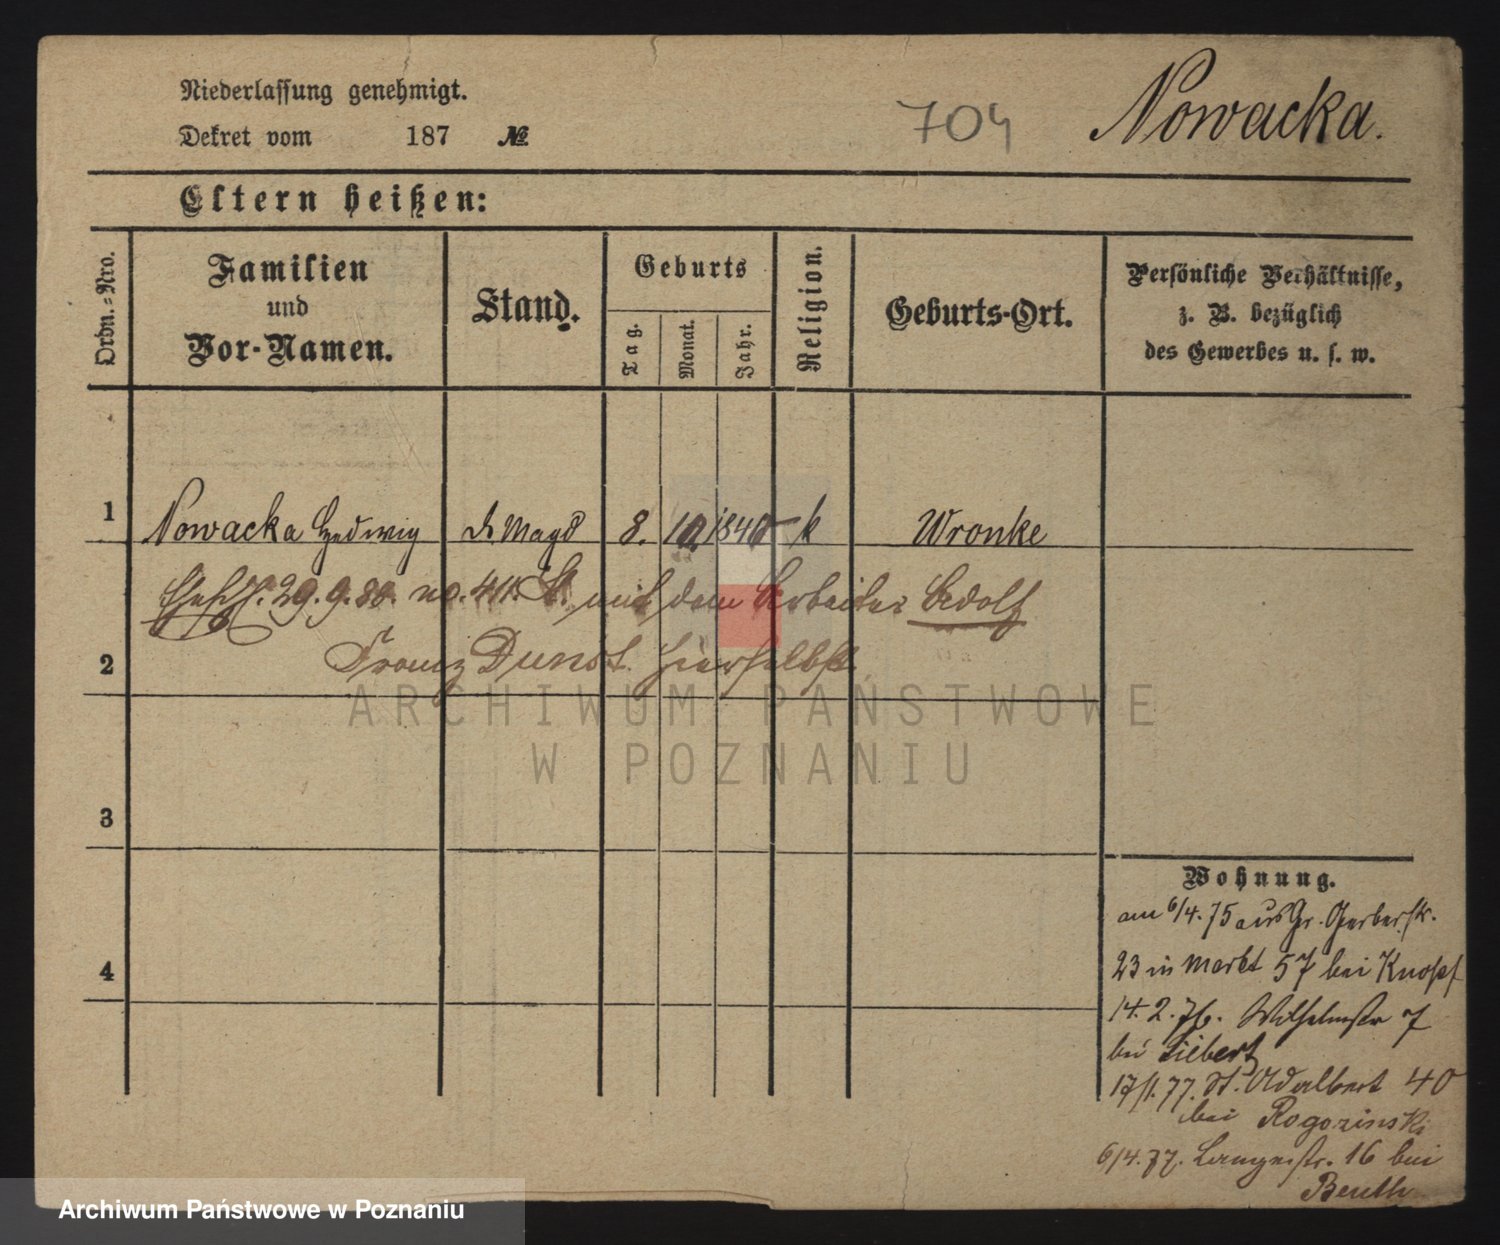 Niederlassung genehmigt.
Dekret vom 187 №
704
Nowacka.
Eltern heißen:
Ordn.-Nro.
Familien
und
Vor-Namen.
Stand.
Geburts
Tag.
Monat.
Jahr.
Religion.
Geburts-Ort.
Persönliche Verhältnisse,
z. B. bezüglich
des Gewerbes u. s. w.
1 Nowacka Hedwig d. Magd 8. 10. 1840 k Wronke
29.9.80. no. mit dem Arbeiter Adolf
2 Franz Dunst hierselbst.
3
4
Wohnung.
am 6/4.75 aus Gr. Gerberstr.
23 in Markt 57 bei Knopf
14.2.76. Wilhelmstr 7
bei Siebert
17/1.77. St. Adalbert 40
bei Rogozinski
6/4.77. Langestr. 16 bei
Beuth
ARCHIWUM PAŃSTWOWE
W POZNANIU
Archiwum Państwowe w Poznaniu